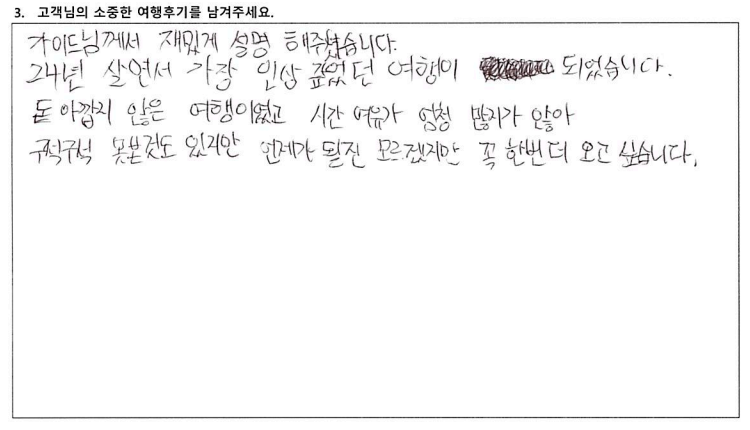 3. 고객님의 소중한 여행후기를 남겨주세요.
가이드님께서 재밌게 설명 해주셨습니다.
24년 살면서 가장 인상 깊었던 여행이 되었습니다.
돈 아깝지 않은 여행이었고 시간 여유가 엄청 많지가 않아
구석구석 못본것도 있지만 언제가 될진 모르겠지만 꼭 한번 더 오고 싶습니다.